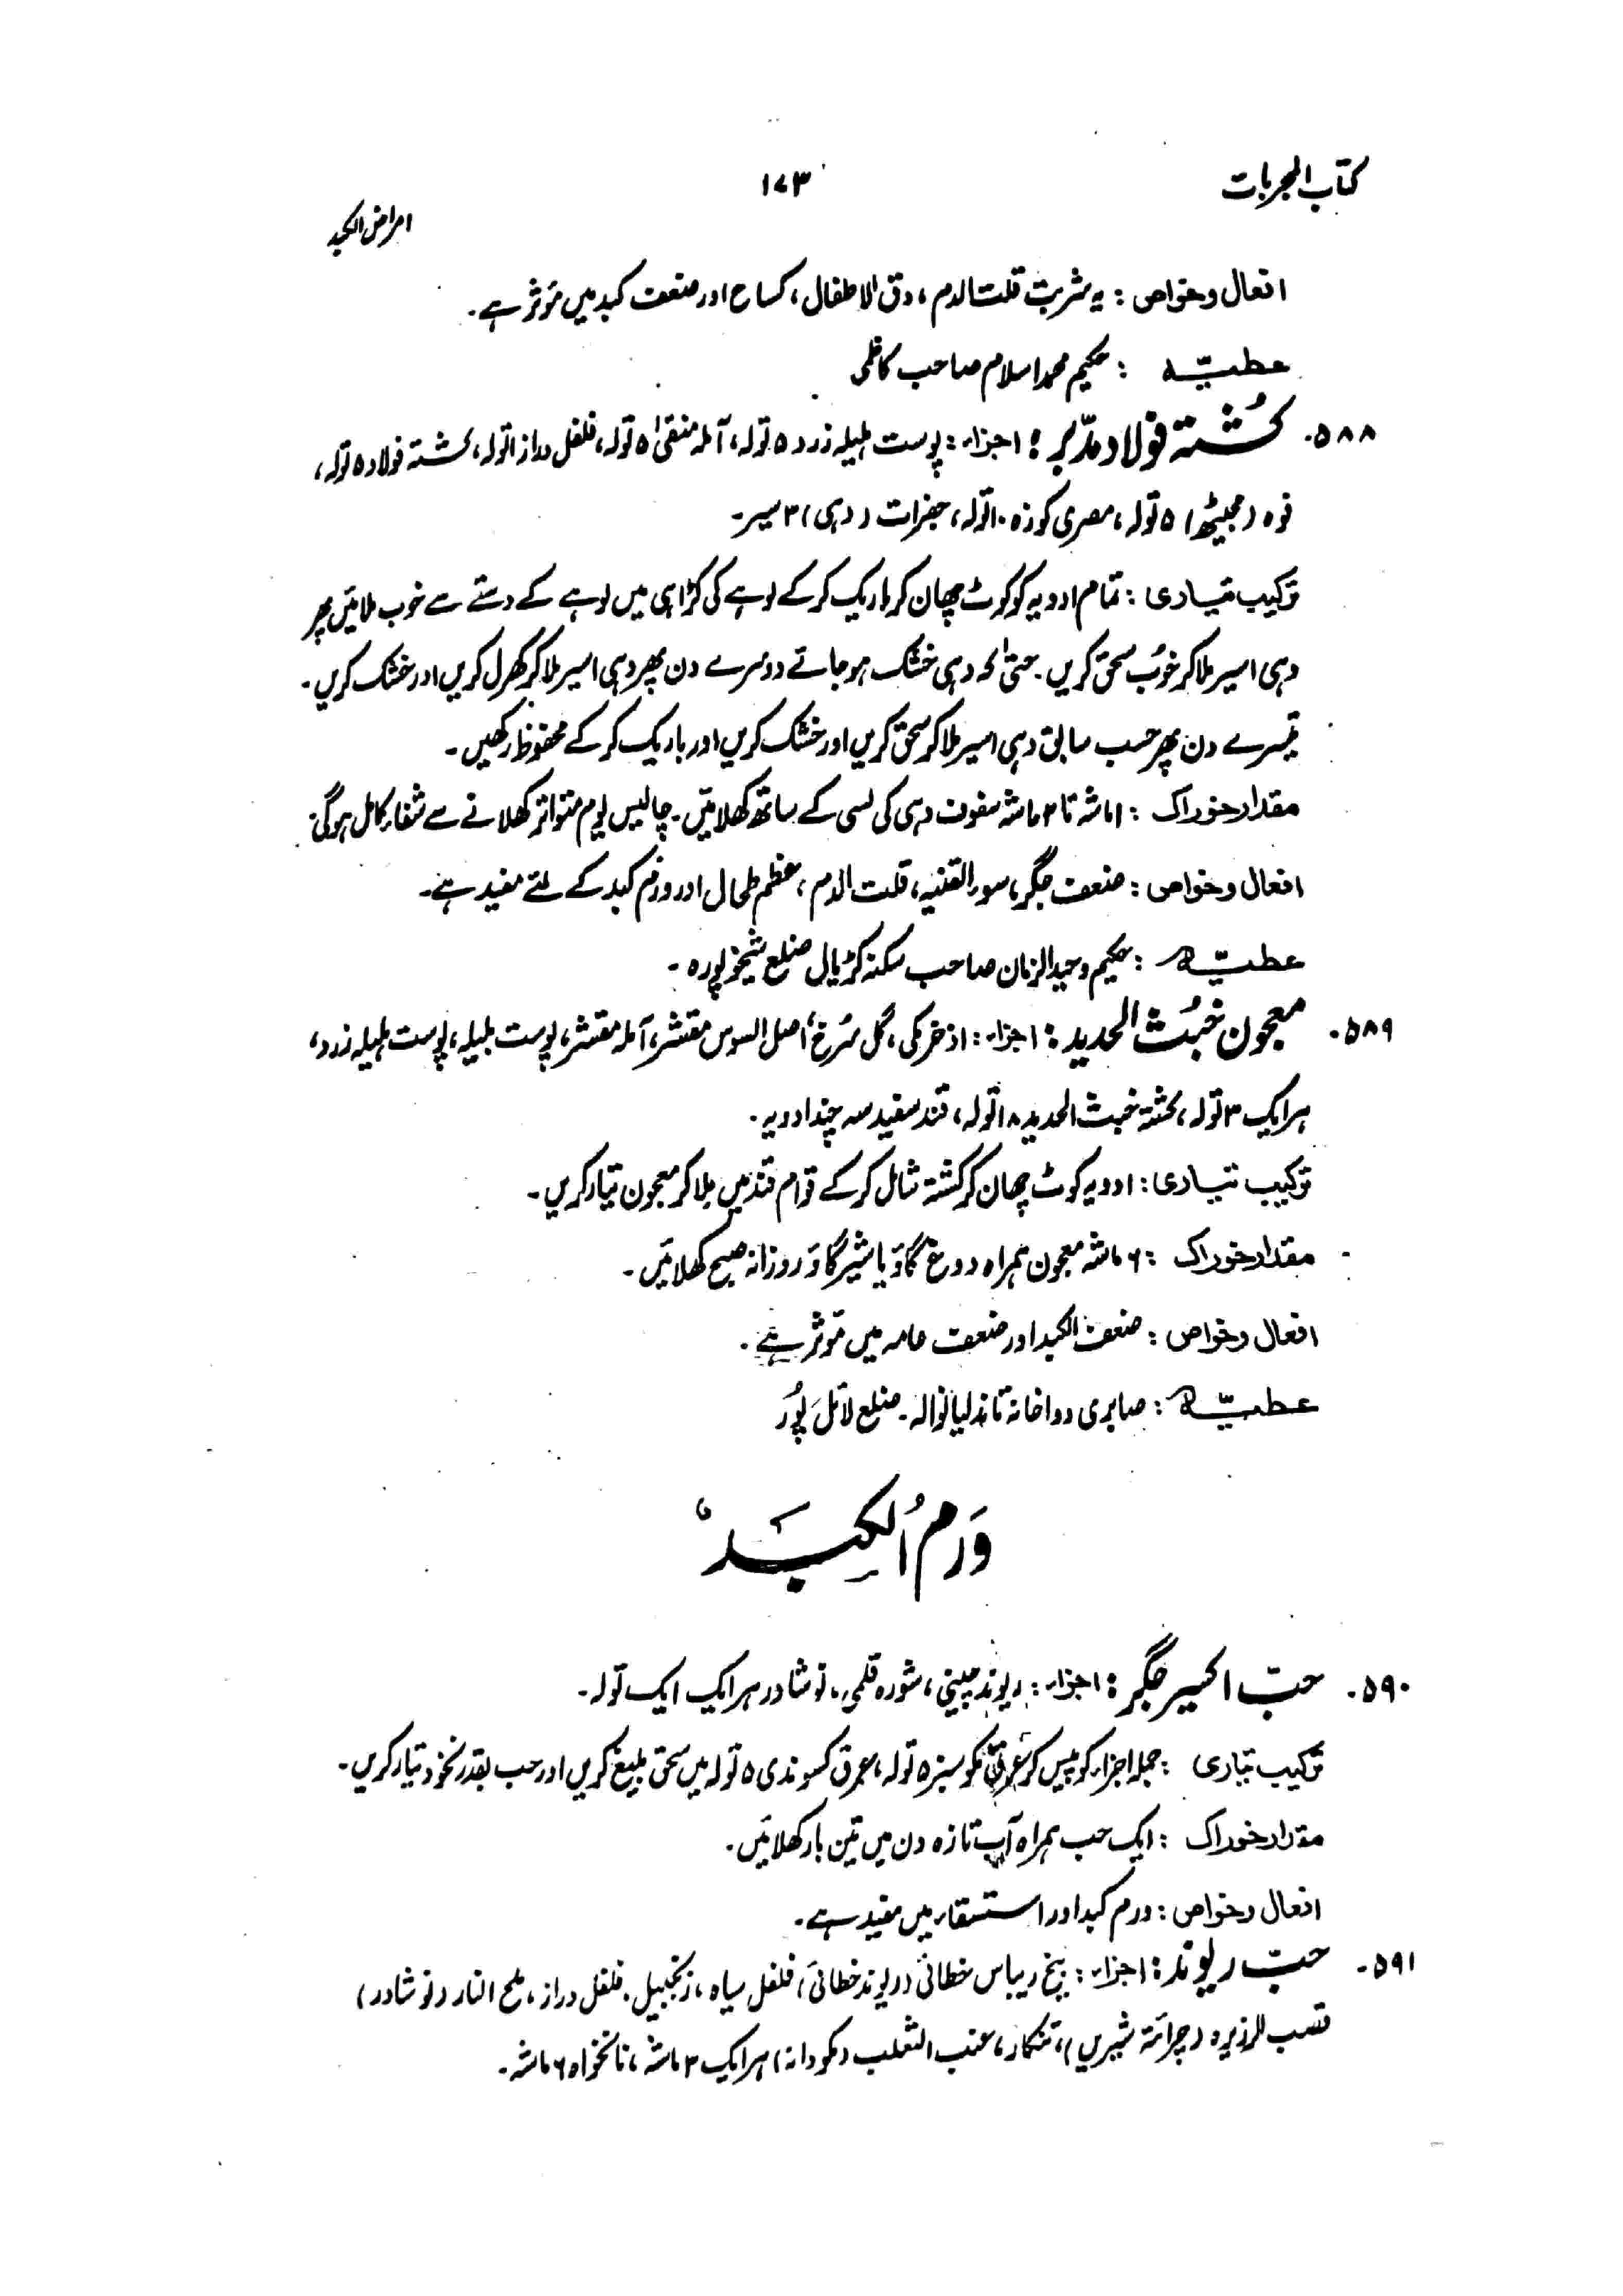 کتاب المجربات
۱۷۳
امراض الکبد
افعال وخواص : یہ شربت قلت الدم ، دق الاطفال ، کساح اور ضعف کبد میں مؤثر ہے ۔
عطیّہ : حکیم محمد اسلام صاحب کاظمی
۵۸۸. کُشتہ فولاد مدّبر : اجزاء : پوست ہلیلہ زرد ۵ تولہ ، آملہ منقیٰ ۵ تولہ ، فلفل دراز ۱ تولہ ، کشتہ فولاد ۵ تولہ ،
فوہ (مجیٹھ) ۵ تولہ ، مصری کوزہ ۱۰ تولہ ، جغرات (دہی) ۳ سیر ۔
ترکیب تیاری : تمام ادویہ کو کوٹ چھان کر باریک کر کے لوہے کی کڑاہی میں لوہے کے دستے سے خوب ملائیں پھر
دہی ۱ سیر ملا کر خوب سحق کریں ۔ حتیٰ کہ دہی خشک ہو جائے دوسرے دن پھر دہی ۱ سیر ملا کر کھرل کریں اور خشک کریں ۔
تیسرے دن پھر حسب سابق دہی ۱ سیر ملا کر سحق کریں اور خشک کریں اور باریک کر کے محفوظ رکھیں ۔
مقدار خوراک : ۱ ماشہ تا ۲ ماشہ سفوف دہی کی لسی کے ساتھ کھلائیں ۔ چالیس یوم متواتر کھلانے سے شفاء کامل ہوگی
افعال وخواص : ضعف جگر ، سوء القنیہ ، قلت الدم ، عظم طحال اور ورم کبد کے لئے مفید ہے ۔
عطیّہ : حکیم وحید الزمان صاحب سکنہ کڑیال ضلع شیخوپورہ ۔
۵۸۹. معجون خبُث الحدید : اجزاء : اذخر مکی ، گل سُرخ ، اصل السوس مقشر ، آملہ مقشر ، پوست بلیلہ ، پوست ہلیلہ زرد ،
ہر ایک ۳ تولہ ، کشتہ خبث الحدید ۱۸ تولہ ، قند سفید سہ چند ادویہ ۔
ترکیب تیاری : ادویہ کوٹ چھان کر کشتہ شامل کر کے قوام قند میں ملا کر معجون تیار کریں ۔
مقدار خوراک : ۶ ماشہ معجون ہمراہ دوغ گاؤ یا شیر گاؤ روزانہ صبح کھلائیں ۔
افعال وخواص : ضعف الکبد اور ضعف عامہ میں مؤثر ہے ۔
عطیّہ : صابری دواخانہ تاندلیانوالہ ۔ ضلع لائل پُور
وَرمُ الکِبَد
۵۹۰. حبّ اکسیر جگر : اجزاء : ریوند چینی ، شورہ قلمی ، نوشادر ہر ایک ایک تولہ ۔
ترکیب تیاری : جملہ اجزاء کو پیس کر عرق مکو سبز ۵ تولہ ، عرق کسوندی ۵ تولہ میں سحق بلیغ کریں اور حب بقدر نخود تیار کریں ۔
مقدار خوراک : ایک حب ہمراہ آب تازہ دن میں تین بار کھلائیں ۔
افعال وخواص : ورم کبد اور استسقاء میں مفید ہے ۔
۵۹۱. حبّ ریوند : اجزاء : بیخ ریباس خطائی (ریوند خطائی) ، فلفل سیاہ ، زنجبیل ، فلفل دراز ، ملح النار (نوشادر)
قصب الزریرہ (چرائتہ شیریں) ، تنکار ، عنب الثعلب (مکودانہ) ہر ایک ۳ ماشہ ، نانخواہ ۶ ماشہ ۔